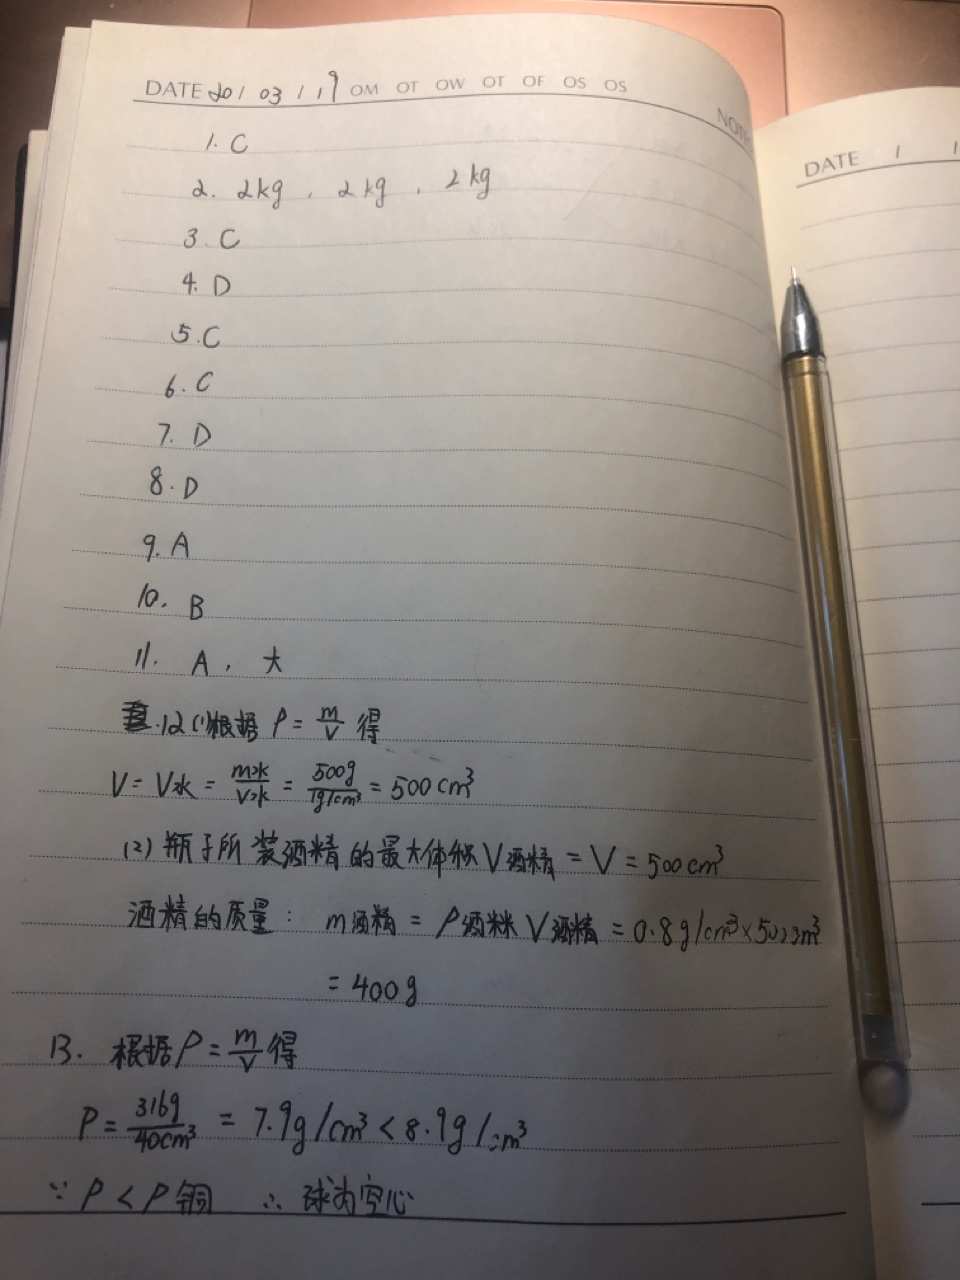 DATE 201 03 / 19 OM OT OW OT OF OS OS
NOTE
DATE / /
1. C
2. 2kg , 2kg , 2kg
3. C
4. D
5. C
6. C
7. D
8. D
9. A
10. B
11. A , 大
12 (1)根据 ρ = m/V 得
V = V水 = m水/V水 = 500g/1g/cm³ = 500cm³
(2) 瓶子所装酒精的最大体积V酒精 = V = 500cm³
酒精的质量: m酒精 = ρ酒精 V酒精 = 0.8g/cm³×500cm³
= 400g
13. 根据ρ = m/V 得
ρ = 316g/40cm³ = 7.9g/cm³ < 8.9g/cm³
∵ ρ < ρ铜 ∴ 球为空心